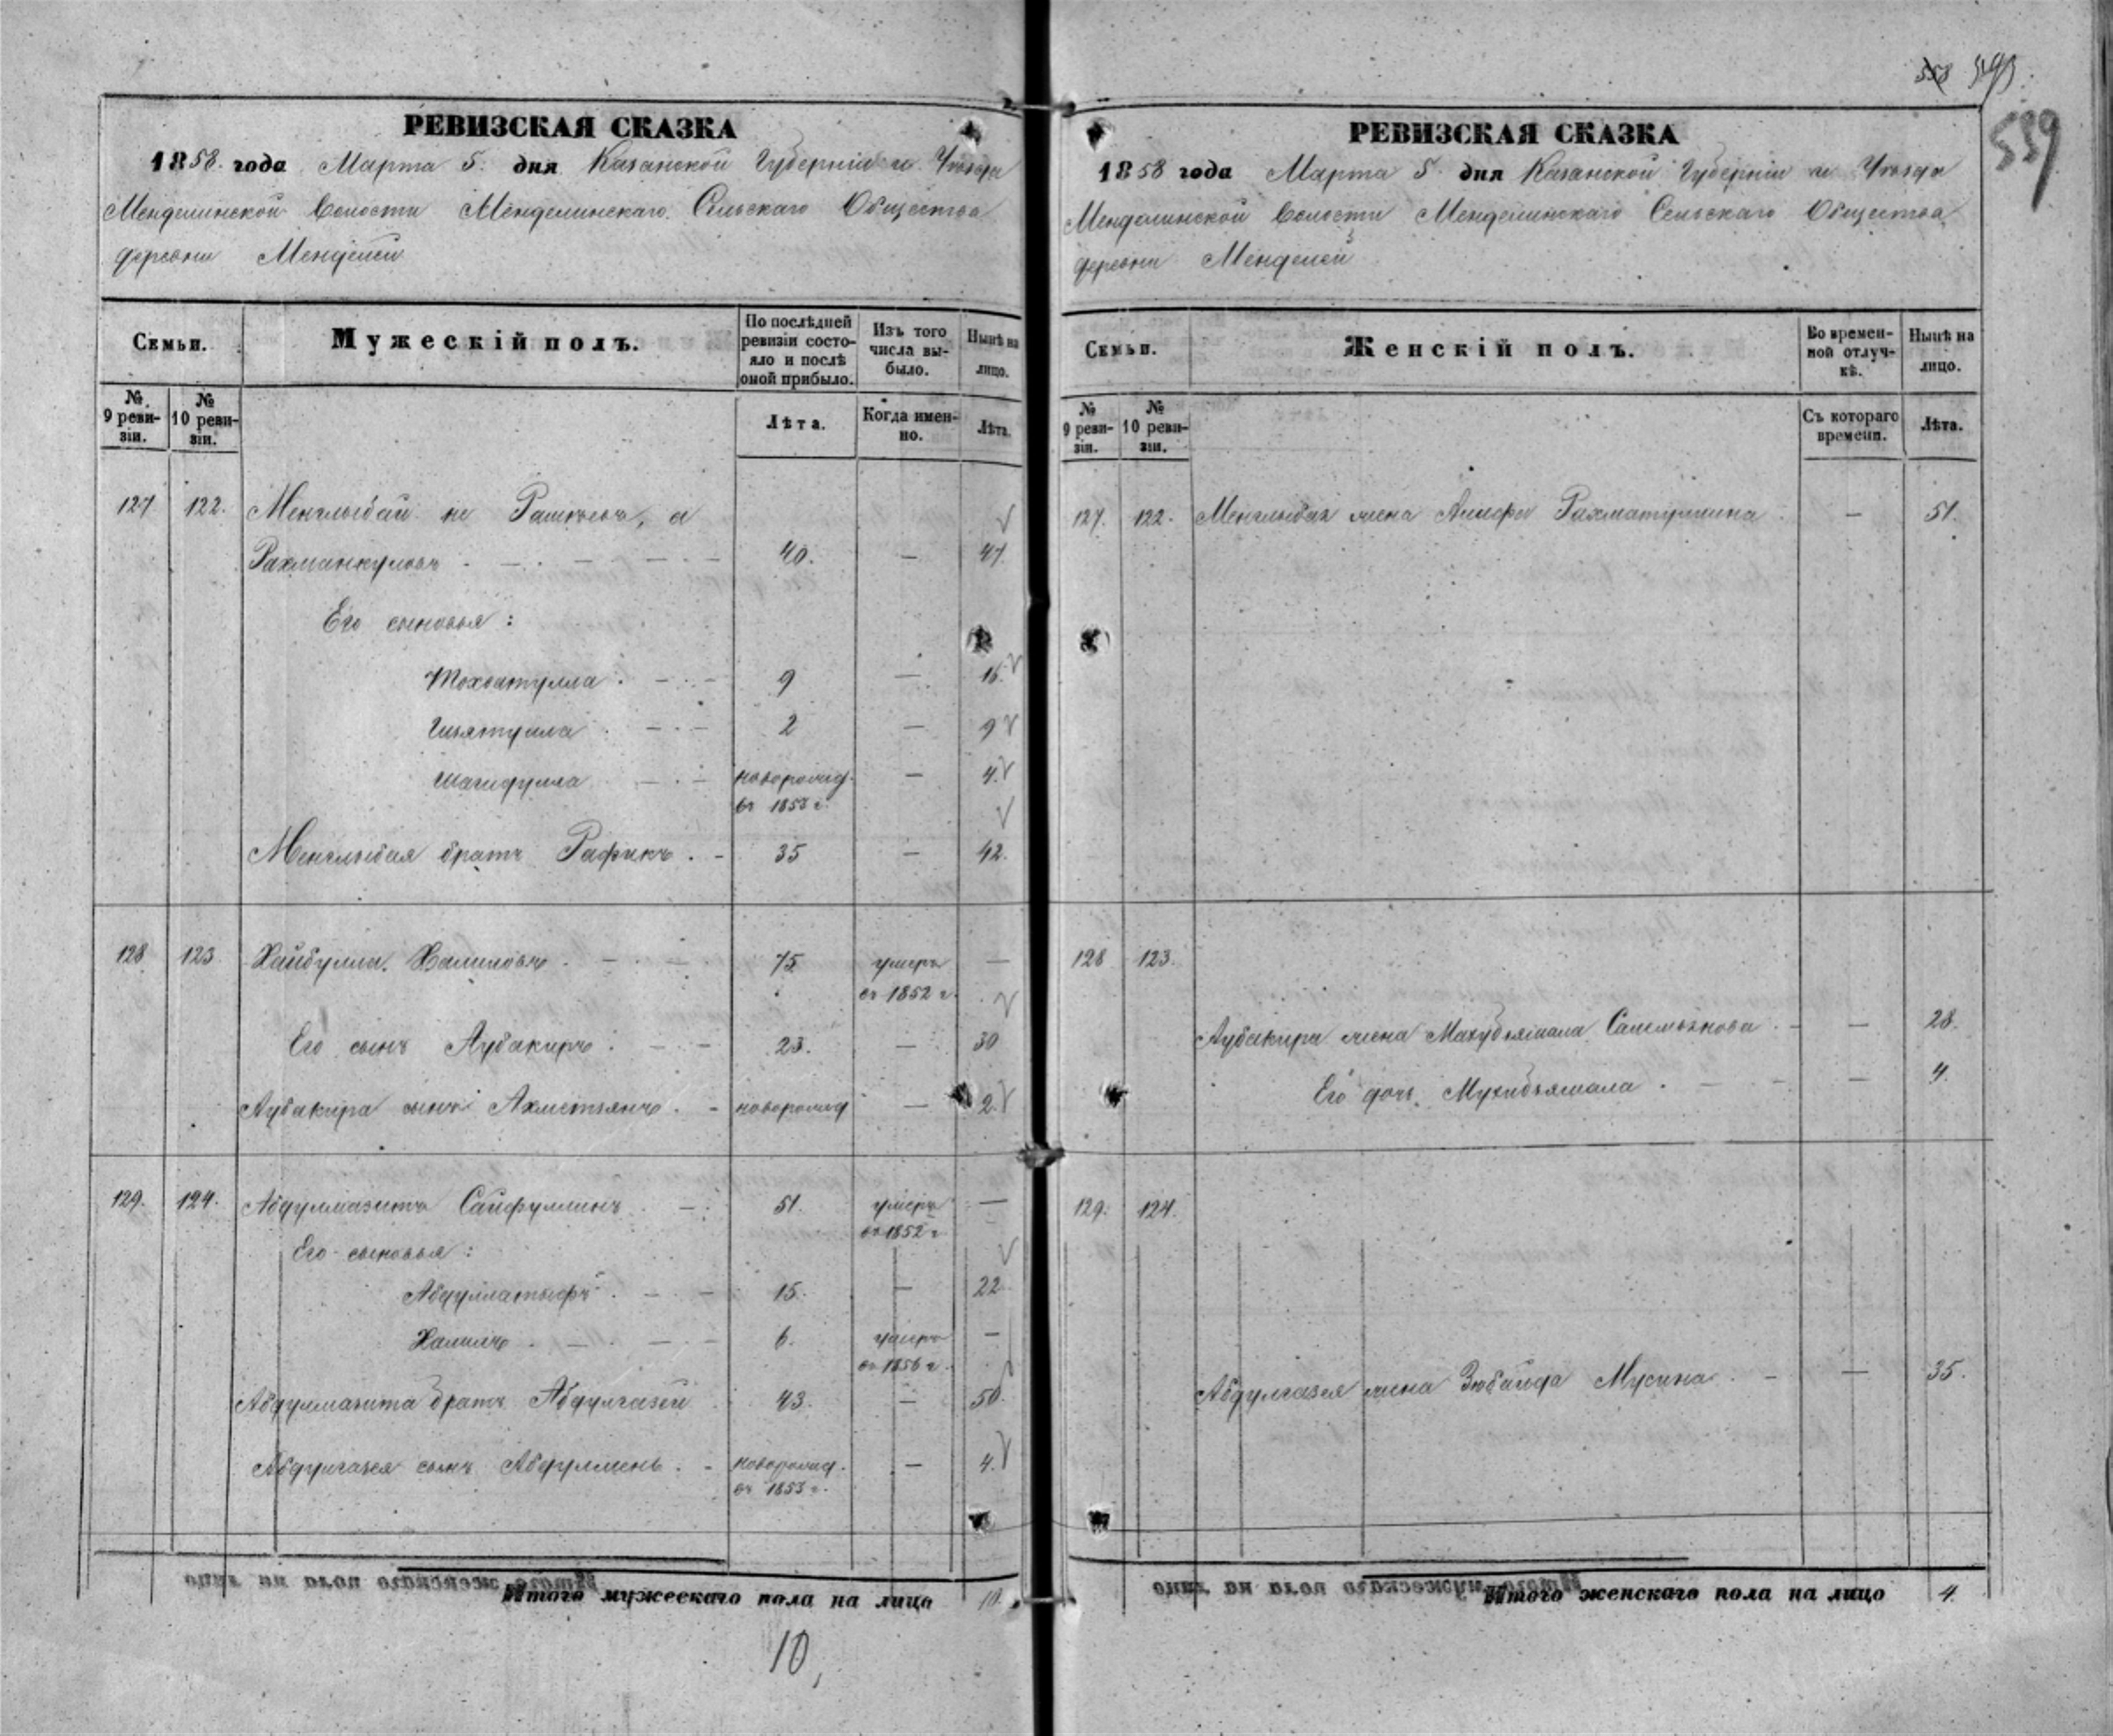 558 593
559
РЕВИЗСКАЯ СКАЗКА
1858 года Марта 5 дня Казанской Губерніи и Уѣзда
Менделинской Волости Менделинскаго Сельскаго Общества
деревни Менделей
Семьи.
Мужескій полъ.
По послѣдней ревизіи состояло и послѣ оной прибыло.
Изъ того числа выбыло.
Нынѣ на лицо.
№ 9 ревизіи.
№ 10 ревизіи.
Лѣта.
Когда именно.
Лѣта.
127 122. Менглыбай не Рашитовъ, а
Рахманкуловъ 40. — 47.
Его сыновья:
9 — 16.
2 — 9
Шагидулла новорожд. — 4.
въ 1853 г.
Менглыбая братъ Рафикъ 35 — 42.
128 123 Хайбулла Халиловъ 75 умеръ —
въ 1852 г.
Его сынъ Аубакиръ 23. — 30
Аубакира сынъ Ахметзянъ новорожд — 2.
129. 124. Абдулмазитъ Сайфуллинъ 51. умеръ —
въ 1852 г
Его сыновья:
Абдуллатыфъ 15. — 22
Халилъ 6. умеръ —
въ 1856 г.
Абдулмазита братъ Абдулгазей 43. — 50.
Абдулгазея сынъ Абдулменъ новорожд. — 4.
въ 1853 г.
Итого мужескаго пола на лицо 10.
10,
РЕВИЗСКАЯ СКАЗКА
1858 года Марта 5 дня Казанской Губерніи и Уѣзда
Менделинской Волости Менделинскаго Сельскаго Общества
деревни Менделей
Семьи.
Женскій полъ.
Во временной отлучкѣ.
Нынѣ на лицо.
№ 9 ревизіи.
№ 10 ревизіи.
Съ котораго времени.
Лѣта.
127. 122. Менглыбая жена Рахматуллина — 51.
128 123.
Аубакира жена Махубзямала — 28.
Его дочь Мухибзямала — 4.
129. 124.
Абдулгазея жена Зюбайда Мусина — 35.
Итого женскаго пола на лицо 4.